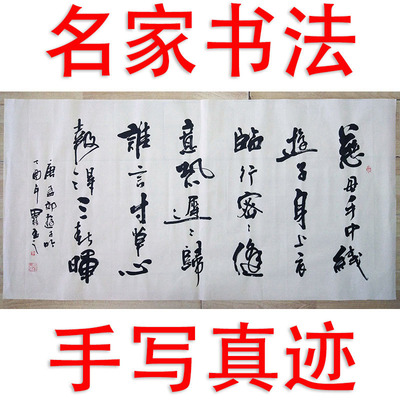 名家书法
慈母手中綫
遊子身上衣
臨行密〻縫
意恐遲〻歸
誰言寸草心
報得三春暉
唐孟郊遊子吟
丁酉年
手写真迹